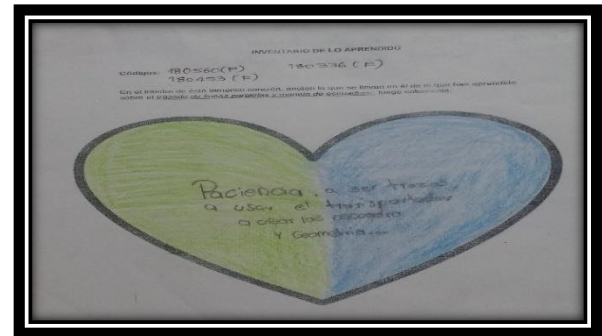 INVENTARIO DE LO APRENDIDO
Códigos: 180560(F) 180336 (F)
180453 (F)
En el interior de este hermoso corazón, anoten lo que se llevan en él de lo que han aprendido
sobre el trazado de líneas paralelas y manejo de escuadras, luego coloreenlo.
Paciencia, a ser trazos,
a usar el transportador
a usar las escuadra
y Geometria...